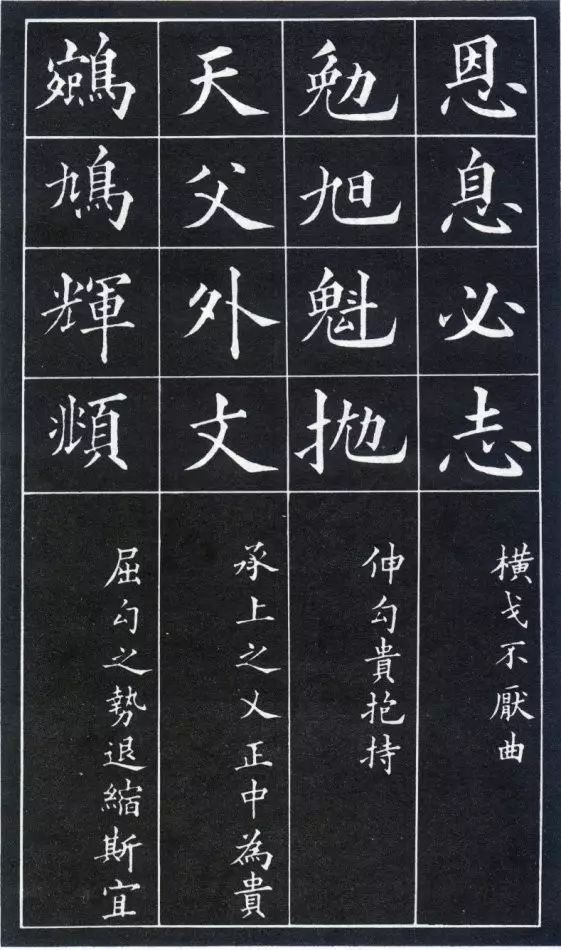 恩息必志
横戈不厭曲
勉旭魁抛
伸勾貴抱持
天父外丈
承上之乂正中為貴
鵷鳩輝頫
屈勾之勢退縮斯宜